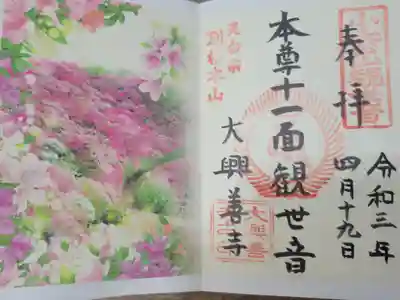 奉拝
令和三年
四月十九日
本尊十一面観世音
大興善寺
別格本山